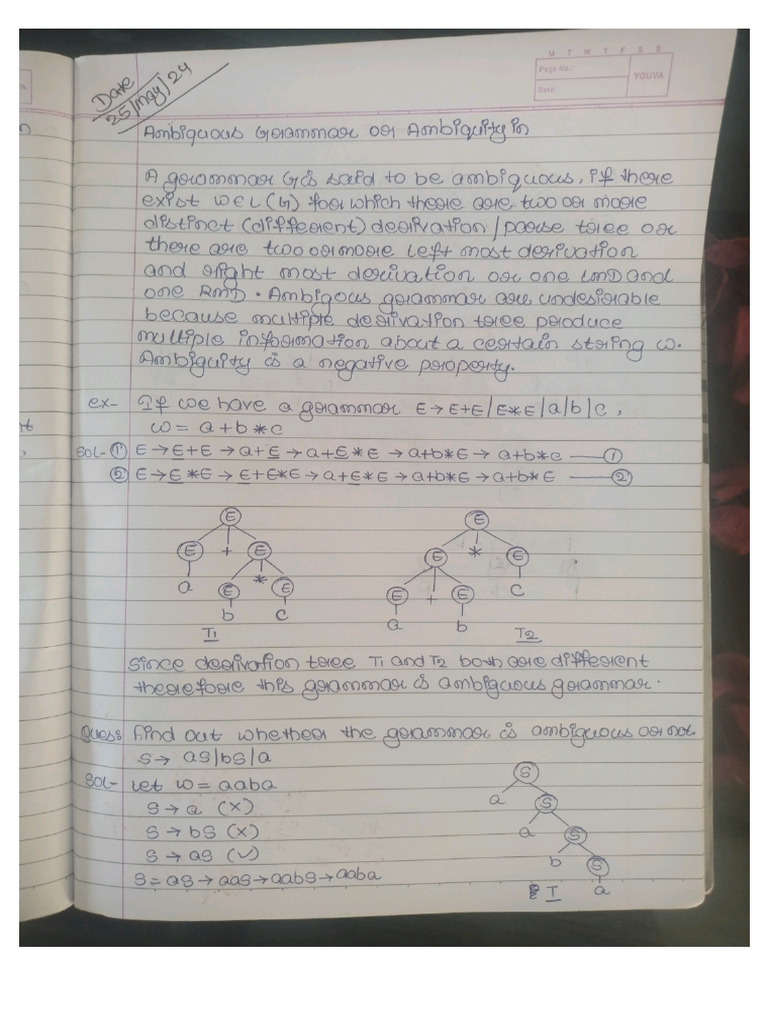 M T W T F S S
Page No.:
YOUVA
Date:
Date
25/may/24
Ambiguous Grammar or Ambiquity in
A grammar G is said to be ambiquous, if there
exist W∈L(G) for which there are, two or more
distinct (different) derivation / parse tree or
there are two or more left most derivation
and right most derivation or one LMD and
one RMD. Ambigous grammar are undesirable
because multiple derivation tree produce
multiple information about a certain string w.
Ambiguity is a negative property.
ex- If we have a grammar E → E+E / E*E / a / b / c ,
w = a + b * c
SOL- ① E → E+E → a+E → a+E*E → a+b*E → a+b*c —— ①
② E → E*E → E+E*E → a+E*E → a+b*E → a+b*E —— ②
E E
E + E E * E
a E * E E + E c
b c a b
T1 T2
Since derivation tree T1 and T2 both are different
therefore this grammar is ambiguous grammar.
Ques: find out whether the grammar is ambiguous or not.
S → aS/bS/a
SOL- Let w = aaba
S → a (×)
S → bS (×)
S → aS (✓)
S = aS → aaS → aabS → aaba
S
a S
a S
b S
I a